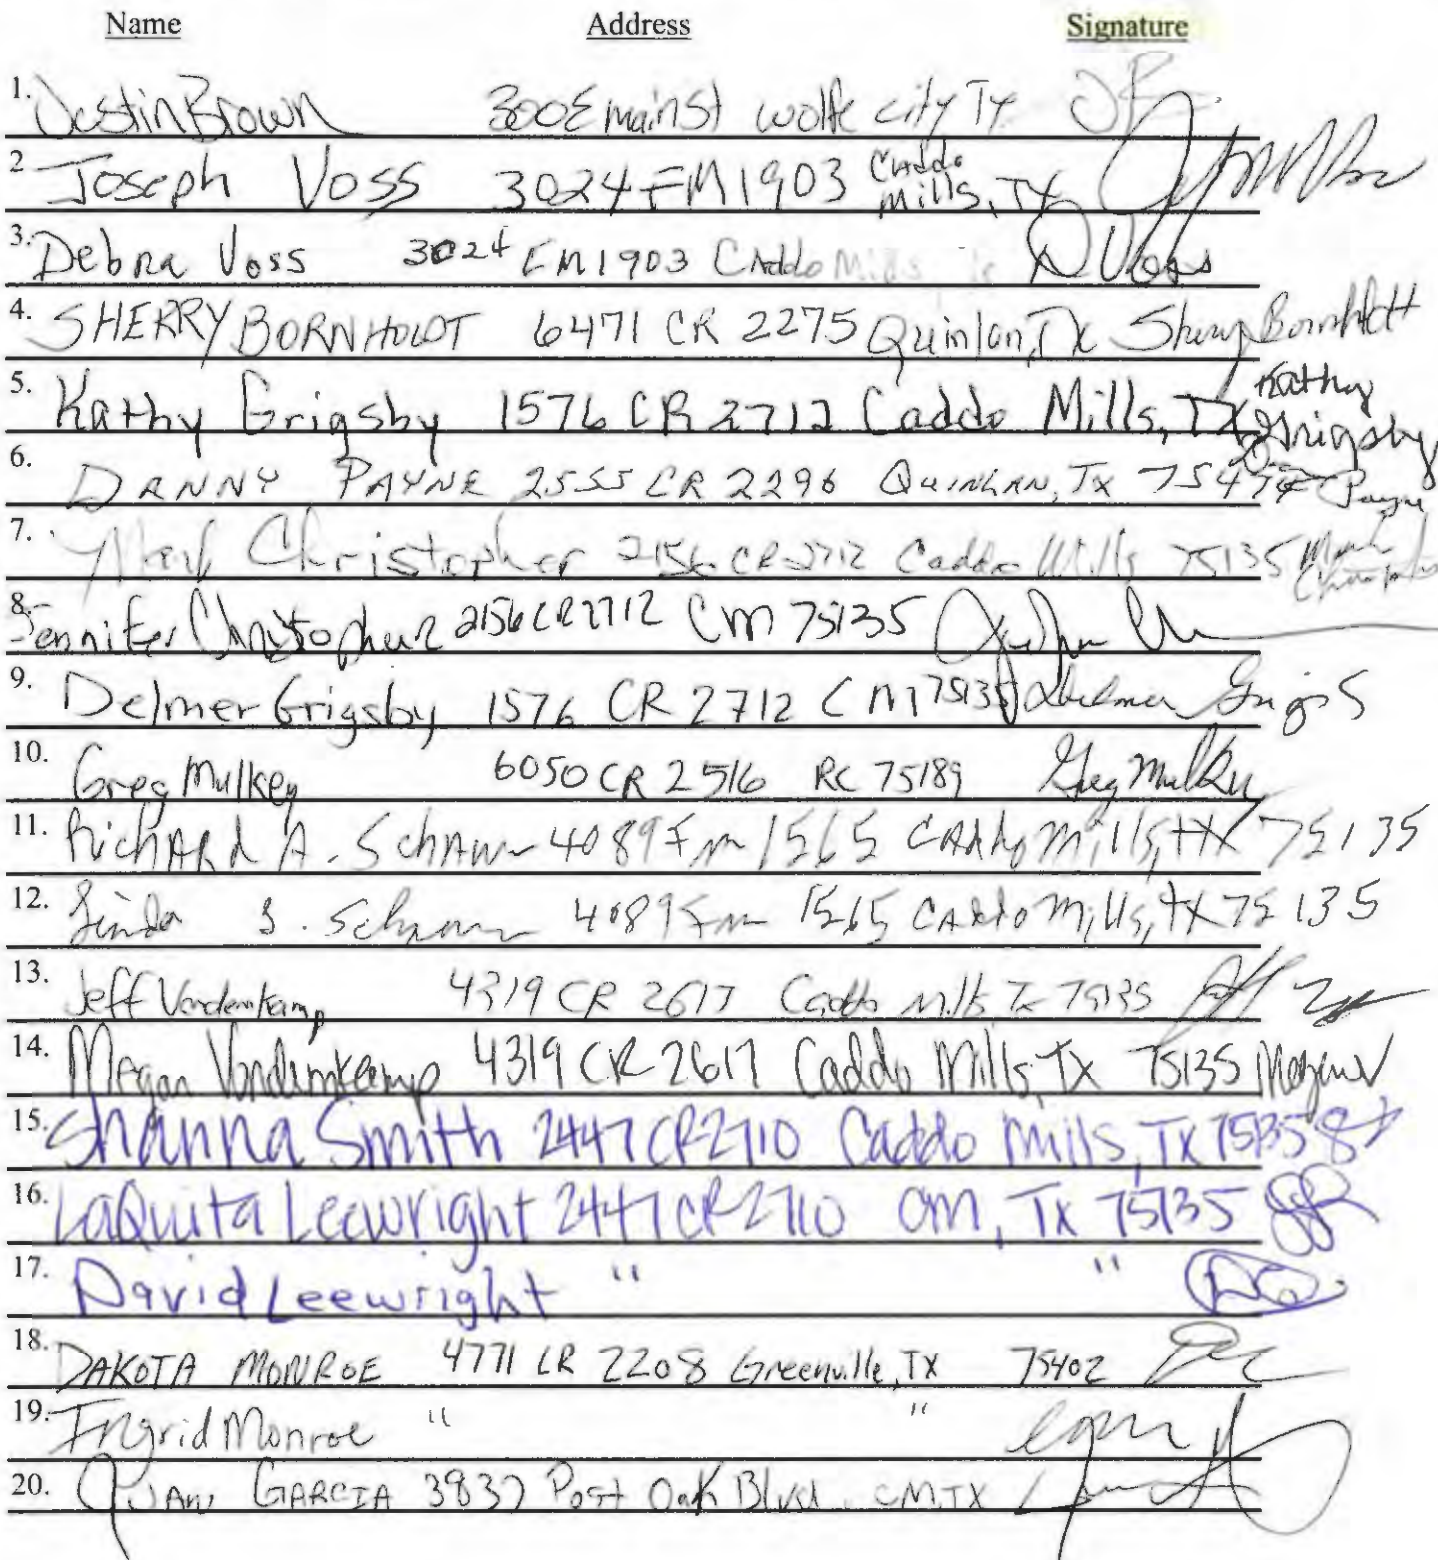 Name Address Signature
1. Justin Brown 300 E main St wolfe city Tx JB
2 Joseph Voss 3024 FM 1903 Caddo Mills, TX
3. Debra Voss 3024 FM 1903 Caddo Mills D Voss
4. SHERRY BORNHOLDT 6471 CR 2275 Quinlan, Tx Sherry Bornholdt
5. Kathy Grigsby 1576 CR 2712 Caddo Mills, TX Kathy Grigsby
6. DANNY PAYNE 2555 CR 2296 QUINLAN, TX 75474 Payne
7. Mark Christopher 2156 CR 2712 Caddo Mills 75135 Mark Christopher
8. Jennifer Christopher 2156 CR 2712 CM 75135
9. Delmer Grigsby 1576 CR 2712 CM 75135 Delmer Grigs
10. Greg Mulkey 6050 CR 2516 RC 75189 Greg Mulkey
11. RichARd A. Schawe 4089 Fm 1565 CAddo Mills, tX 75135
12. Linda S. Schawe 4089 Fm 1565 CAddo Mills, tX 75135
13. Jeff Vondenkamp 4319 CR 2617 Caddo Mills Tx 75135
14. Megan Vondenkamp 4319 CR 2617 Caddo Mills, Tx 75135 Megan V
15. Shanna Smith 2447 CR 2710 Caddo Mills, Tx 75135
16. LaQuita Leewright 2447 CR 2710 CM, Tx 75135
17. David Leewright " "
18. DAKOTA MONROE 4771 CR 2208 Greenville, TX 75402
19. Ingrid Monroe " "
20. JUAN GARCIA 3837 Post Oak Blvd. CM TX